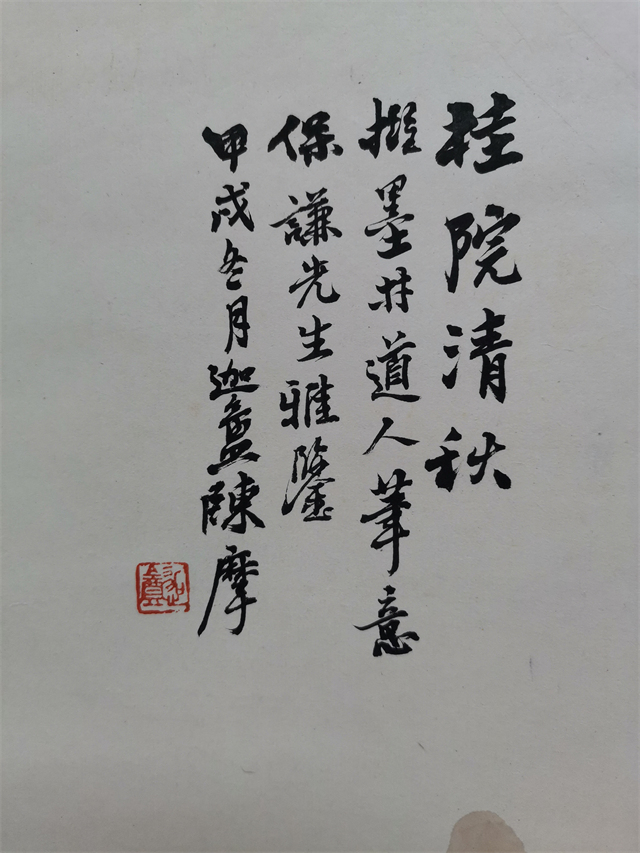 桂院清秋
擬墨林道人筆意
保謙先生雅鑒
甲戌冬月迦盦陳摩
迦盦